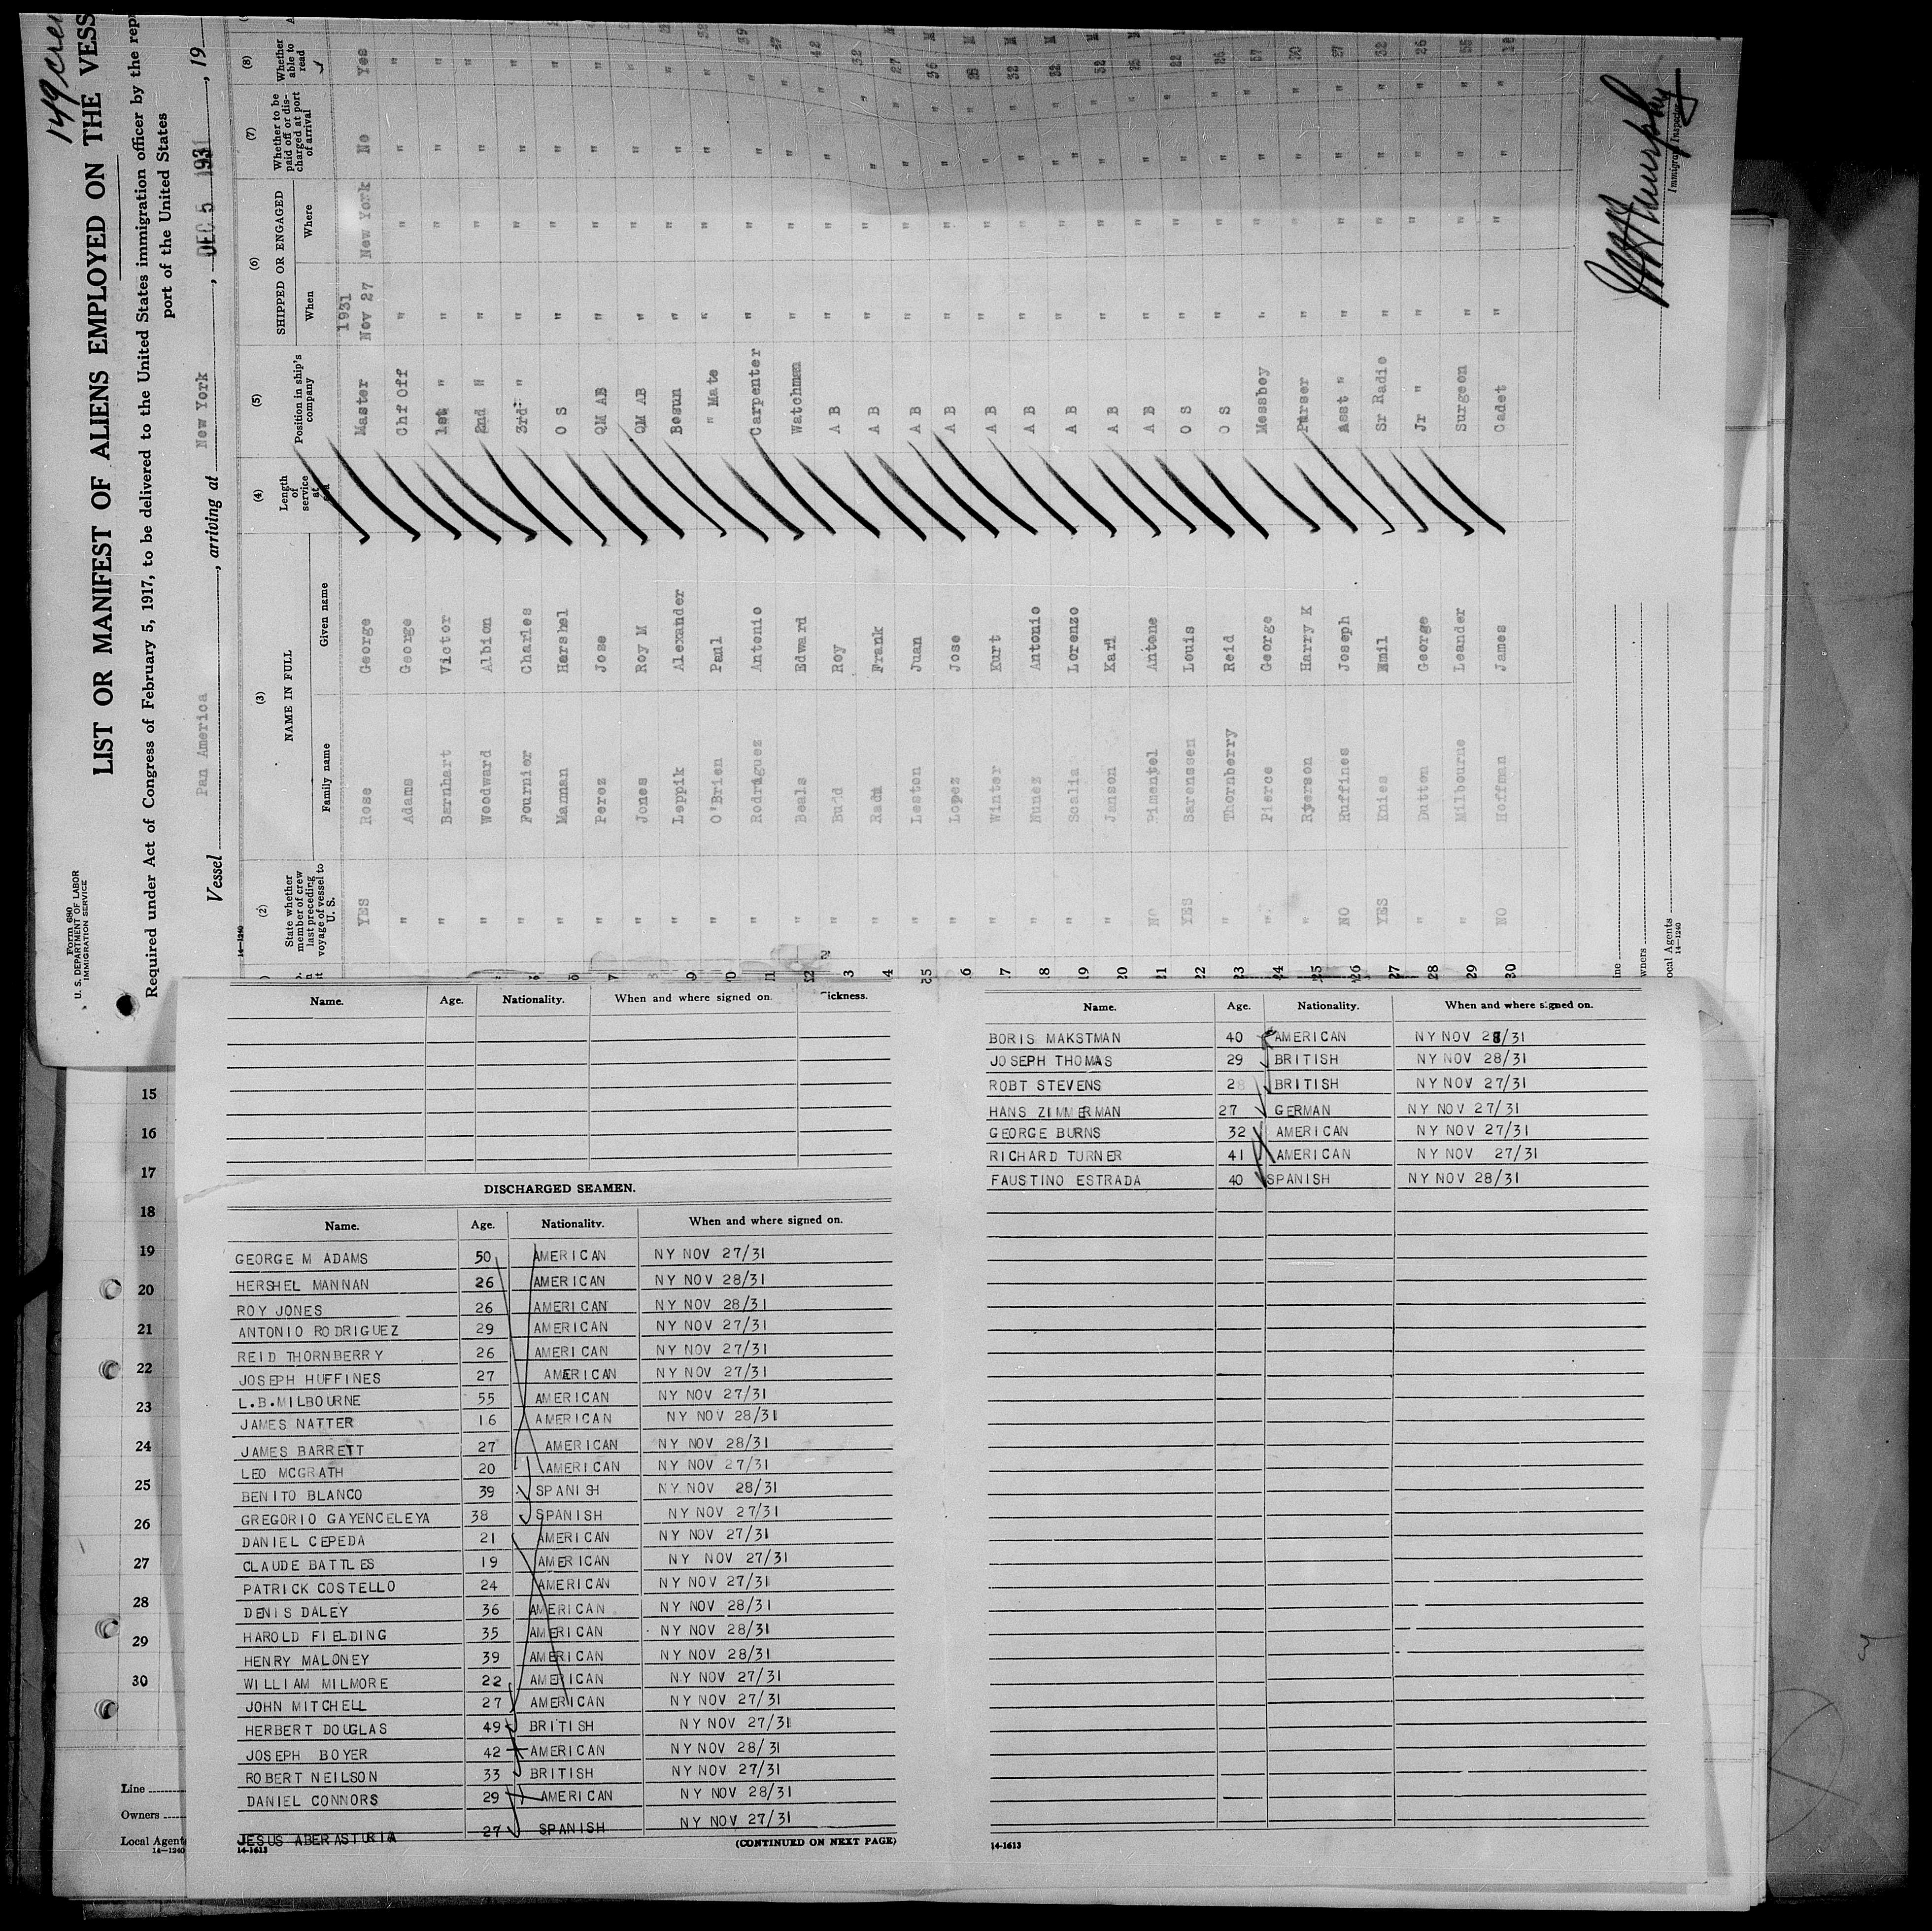 149 crew
Form 680
U. S. DEPARTMENT OF LABOR
IMMIGRATION SERVICE
LIST OR MANIFEST OF ALIENS EMPLOYED ON THE VESS
Required under Act of Congress of February 5, 1917, to be delivered to the United States immigration officer by the repr
port of the United States
Vessel Pan America, arriving at New York, DEC 5 1931, 19
14-1240
(2) (3) (4) (5) (6) (7) (8)
State whether member of crew last preceding voyage of vessel to U. S. NAME IN FULL Length of service at sea Position in ship's company SHIPPED OR ENGAGED Whether to be paid off or discharged at port of arrival Whether able to read
Family name Given name When Where
1931
YES Rose George Master Nov 27 New York No Yes
" Adams George Chf Off " " " "
" Barnhart Victor 1st " " " " "
" Woodward Albion 2nd " " " " "
" Fournier Charles 3rd " " " " "
" Mannan Hershel O S " " " "
" Perez Jose QM AB " " " "
" Jones Roy M QM AB " " " "
" Leppik Alexander Bosun " " " "
" O'Brien Paul " Mate " " " "
" Rodriguez Antonio Carpenter " " " " 39
" Beals Edward Watchman " " " " 47
" Budd Roy A B " " " " 42
" Rada Frank A B " " " " 32
" Leston Juan A B " " " " 27
" Lopez Jose A B " " " " 36
" Winter Kurt A B " " " " 28 M
" Nunez Antonio A B " " " " 32 M
" Scalia Lorenzo A B " " " " 32 M
" Janson Karl A B " " " " 32 M
NO Pimentel Antone A B " " " " 25
YES Sarenssen Louis O S " " " " 22
" Thornberry Reid O S " " " " 26
" Pierce George Messboy " " " " 57
" Ryerson Harry K Purser " " " " 30
NO Huffines Joseph Asst " " " " " 27
YES Knies Emil Sr Radio " " " " 32
" Dutton George Jr " " " " " 26
" Milbourne Leander Surgeon " " " " 55
NO Hoffman James Cadet " " " " 18
Murphy
Immigrant Inspector
ine
wners
ocal Agents
14-1240
Name. Age. Nationality. When and where signed on. ickness.
DISCHARGED SEAMEN.
Name. Age. Nationality. When and where signed on.
GEORGE M ADAMS 50 AMERICAN NY NOV 27/31
HERSHEL MANNAN 26 AMERICAN NY NOV 28/31
ROY JONES 26 AMERICAN NY NOV 28/31
ANTONIO RODRIGUEZ 29 AMERICAN NY NOV 27/31
REID THORNBERRY 26 AMERICAN NY NOV 27/31
JOSEPH HUFFINES 27 AMERICAN NY NOV 27/31
L.B.MILBOURNE 55 AMERICAN NY NOV 27/31
JAMES NATTER 16 AMERICAN NY NOV 28/31
JAMES BARRETT 27 AMERICAN NY NOV 28/31
LEO MCGRATH 20 AMERICAN NY NOV 27/31
BENITO BLANCO 39 SPANISH NY NOV 28/31
GREGORIO GAYENCELEYA 38 SPANISH NY NOV 27/31
DANIEL CEPEDA 21 AMERICAN NY NOV 27/31
CLAUDE BATTLES 19 AMERICAN NY NOV 27/31
PATRICK COSTELLO 24 AMERICAN NY NOV 27/31
DENIS DALEY 36 AMERICAN NY NOV 28/31
HAROLD FIELDING 35 AMERICAN NY NOV 28/31
HENRY MALONEY 39 AMERICAN NY NOV 28/31
WILLIAM MILMORE 22 AMERICAN NY NOV 27/31
JOHN MITCHELL 27 AMERICAN NY NOV 27/31
HERBERT DOUGLAS 49 BRITISH NY NOV 27/31
JOSEPH BOYER 42 AMERICAN NY NOV 28/31
ROBERT NEILSON 33 BRITISH NY NOV 27/31
DANIEL CONNORS 29 AMERICAN NY NOV 28/31
JESUS ABERASTURIA 27 SPANISH NY NOV 27/31
14-1613
(CONTINUED ON NEXT PAGE)
Name. Age. Nationality. When and where signed on.
BORIS MAKSTMAN 40 AMERICAN NY NOV 28/31
JOSEPH THOMAS 29 BRITISH NY NOV 28/31
ROBT STEVENS 28 BRITISH NY NOV 27/31
HANS ZIMMERMAN 27 GERMAN NY NOV 27/31
GEORGE BURNS 32 AMERICAN NY NOV 27/31
RICHARD TURNER 41 AMERICAN NY NOV 27/31
FAUSTINO ESTRADA 40 SPANISH NY NOV 28/31
14-1613
15
16
17
18
19
20
21
22
23
24
25
26
27
28
29
30
Line
Owners
Local Agent
14-1240